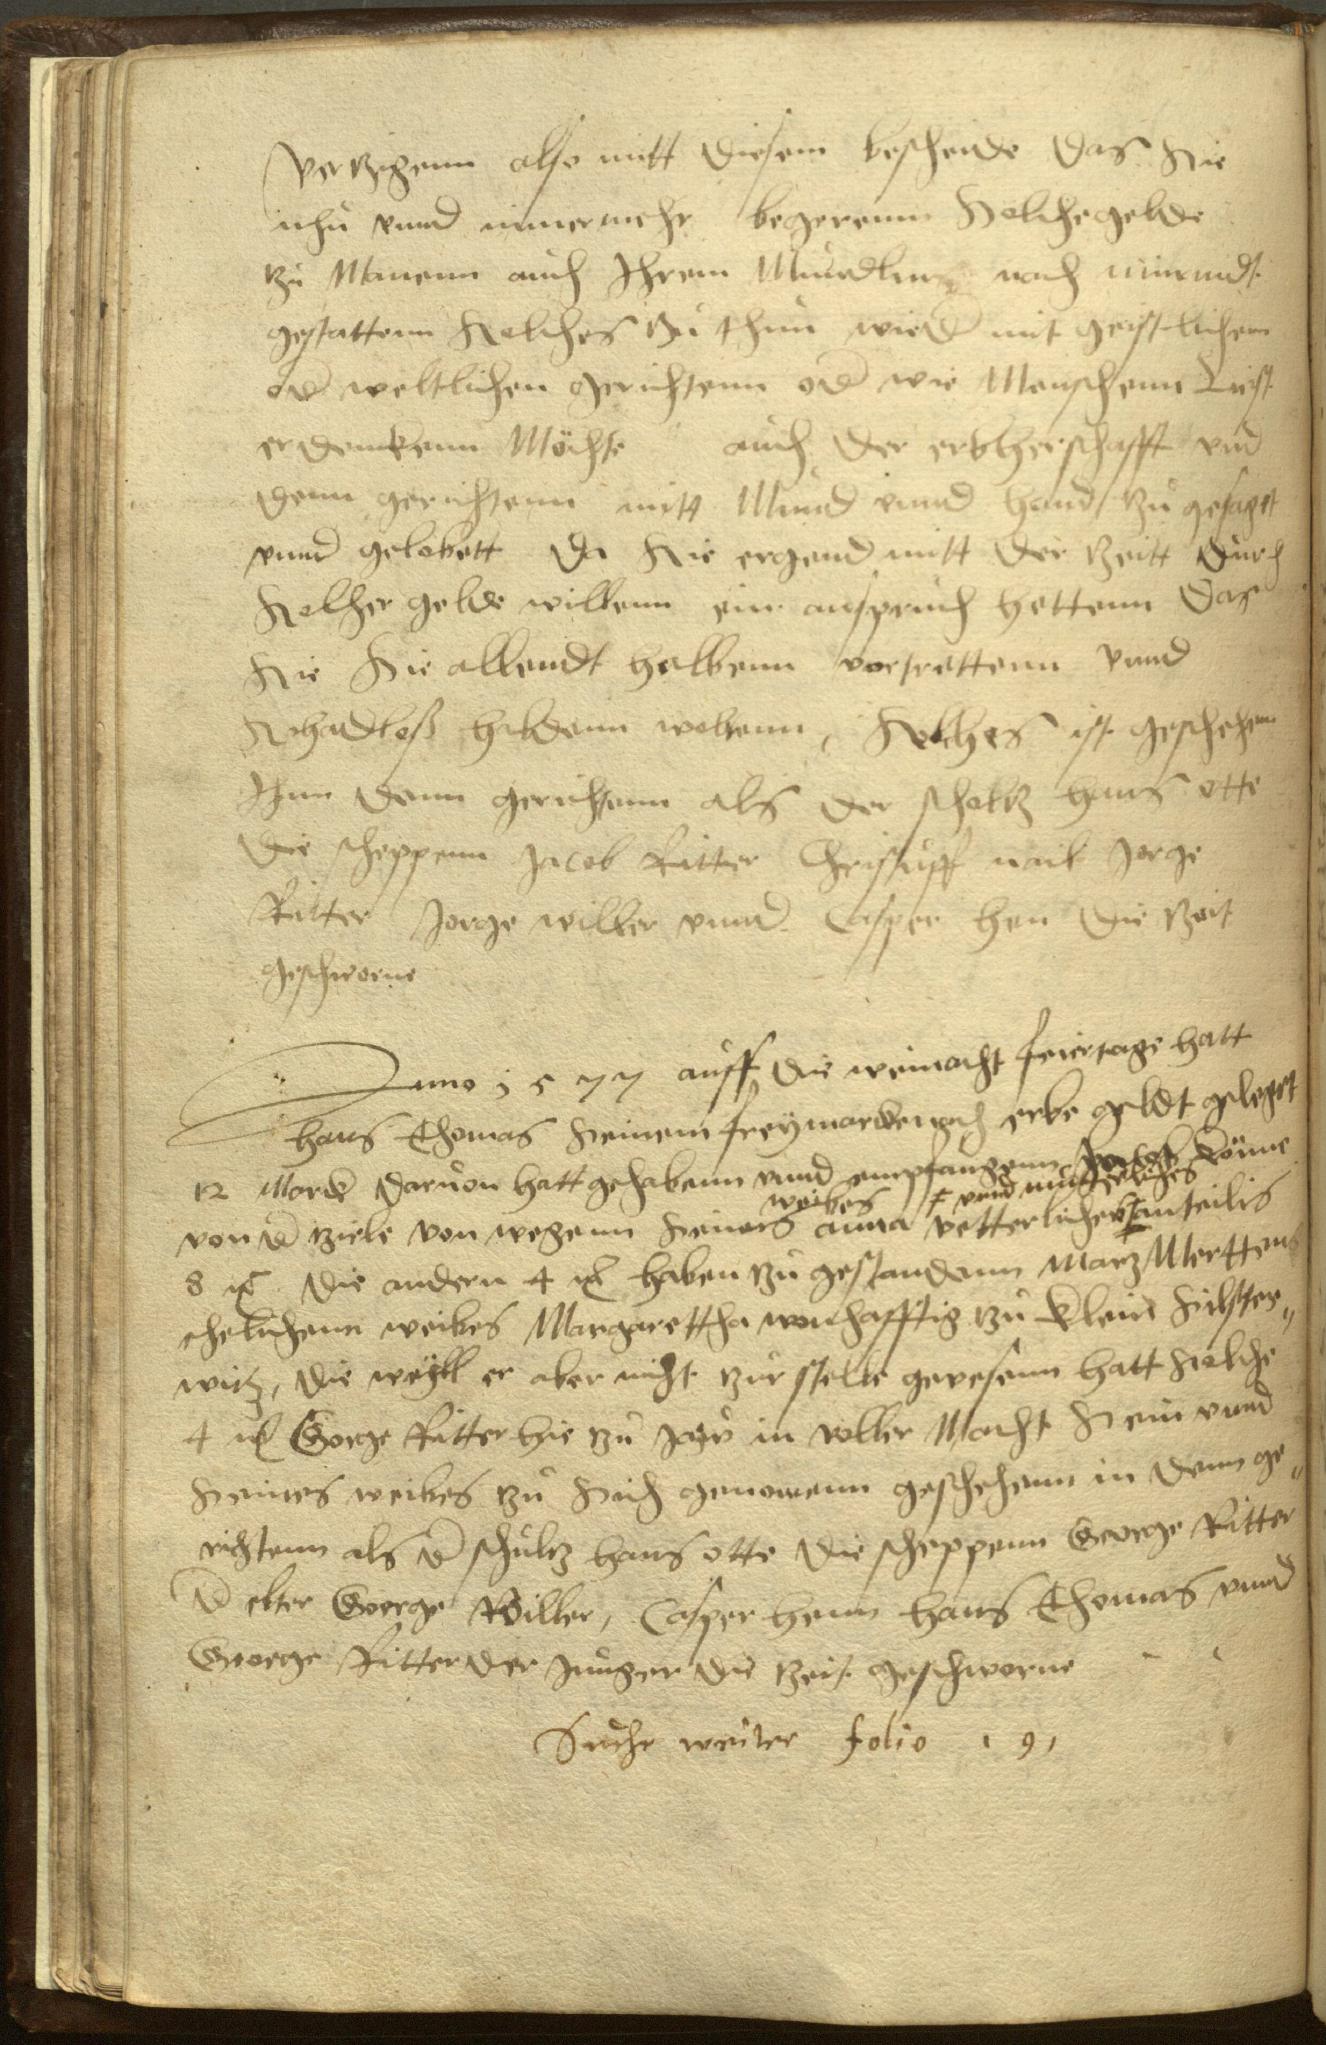 vertzigenn also mitt diesem bescheide das sie
nhu vnnd nimermehr begerenn solche gelde
zu Manenn auch Ihrem Mundlin noch nimandt
gestattenn solches zu thun wider mit geistlichem
oder weltlichen gerichtenn oder wie Menschenn List
erdenckenn Möchte auch der erbherschafft vnd
denn gerichtenn mitt Mund vnnd hand zu gesaget
vnnd gelobett Da sie ergend mitt der zeitt durch
solcher gelde willenn ein anspruch hettenn das
sie sie allendt halbenn vortrettenn vnnd
schadloß haldenn wollenn, solches ist geschehenn
Inn denn gerichtenn als der scholtz hans otte
die scheppenn Jacob Ritter Christuff nail Jorge
Ritter Jorge willer vnnd Casper hen die zeit
geschworne
Anno 1577 auff die weinacht feiertage hatt
hans Thomas seinem freymarde nach erbe geldt geleget
12 Marck daruon hatt gehabenn vnnd empfangenn
weibes vnd mutterliches
von der ziele von wegenn seines anna vetterliches anteilis
8 mk die andern 4 mk haben zu gestandenn Marz Merttens
ehelichenn weibes Margarettha wonhafftig zu klein silster„
witz, die weyll er aber nicht zur stelle gewesenn hatt solche
4 mk George Ritter hie zu in voller Macht sein vnnd
seines weibes zu sich genomenn geschehenn in denn ge„
richtenn als der schultz hans otte die scheppenn George Ritter
der elter George Willer, Casper henn hans Thomas vnnd
George Ritter der Junger die zeit geschworne
Suche weiter folio 191